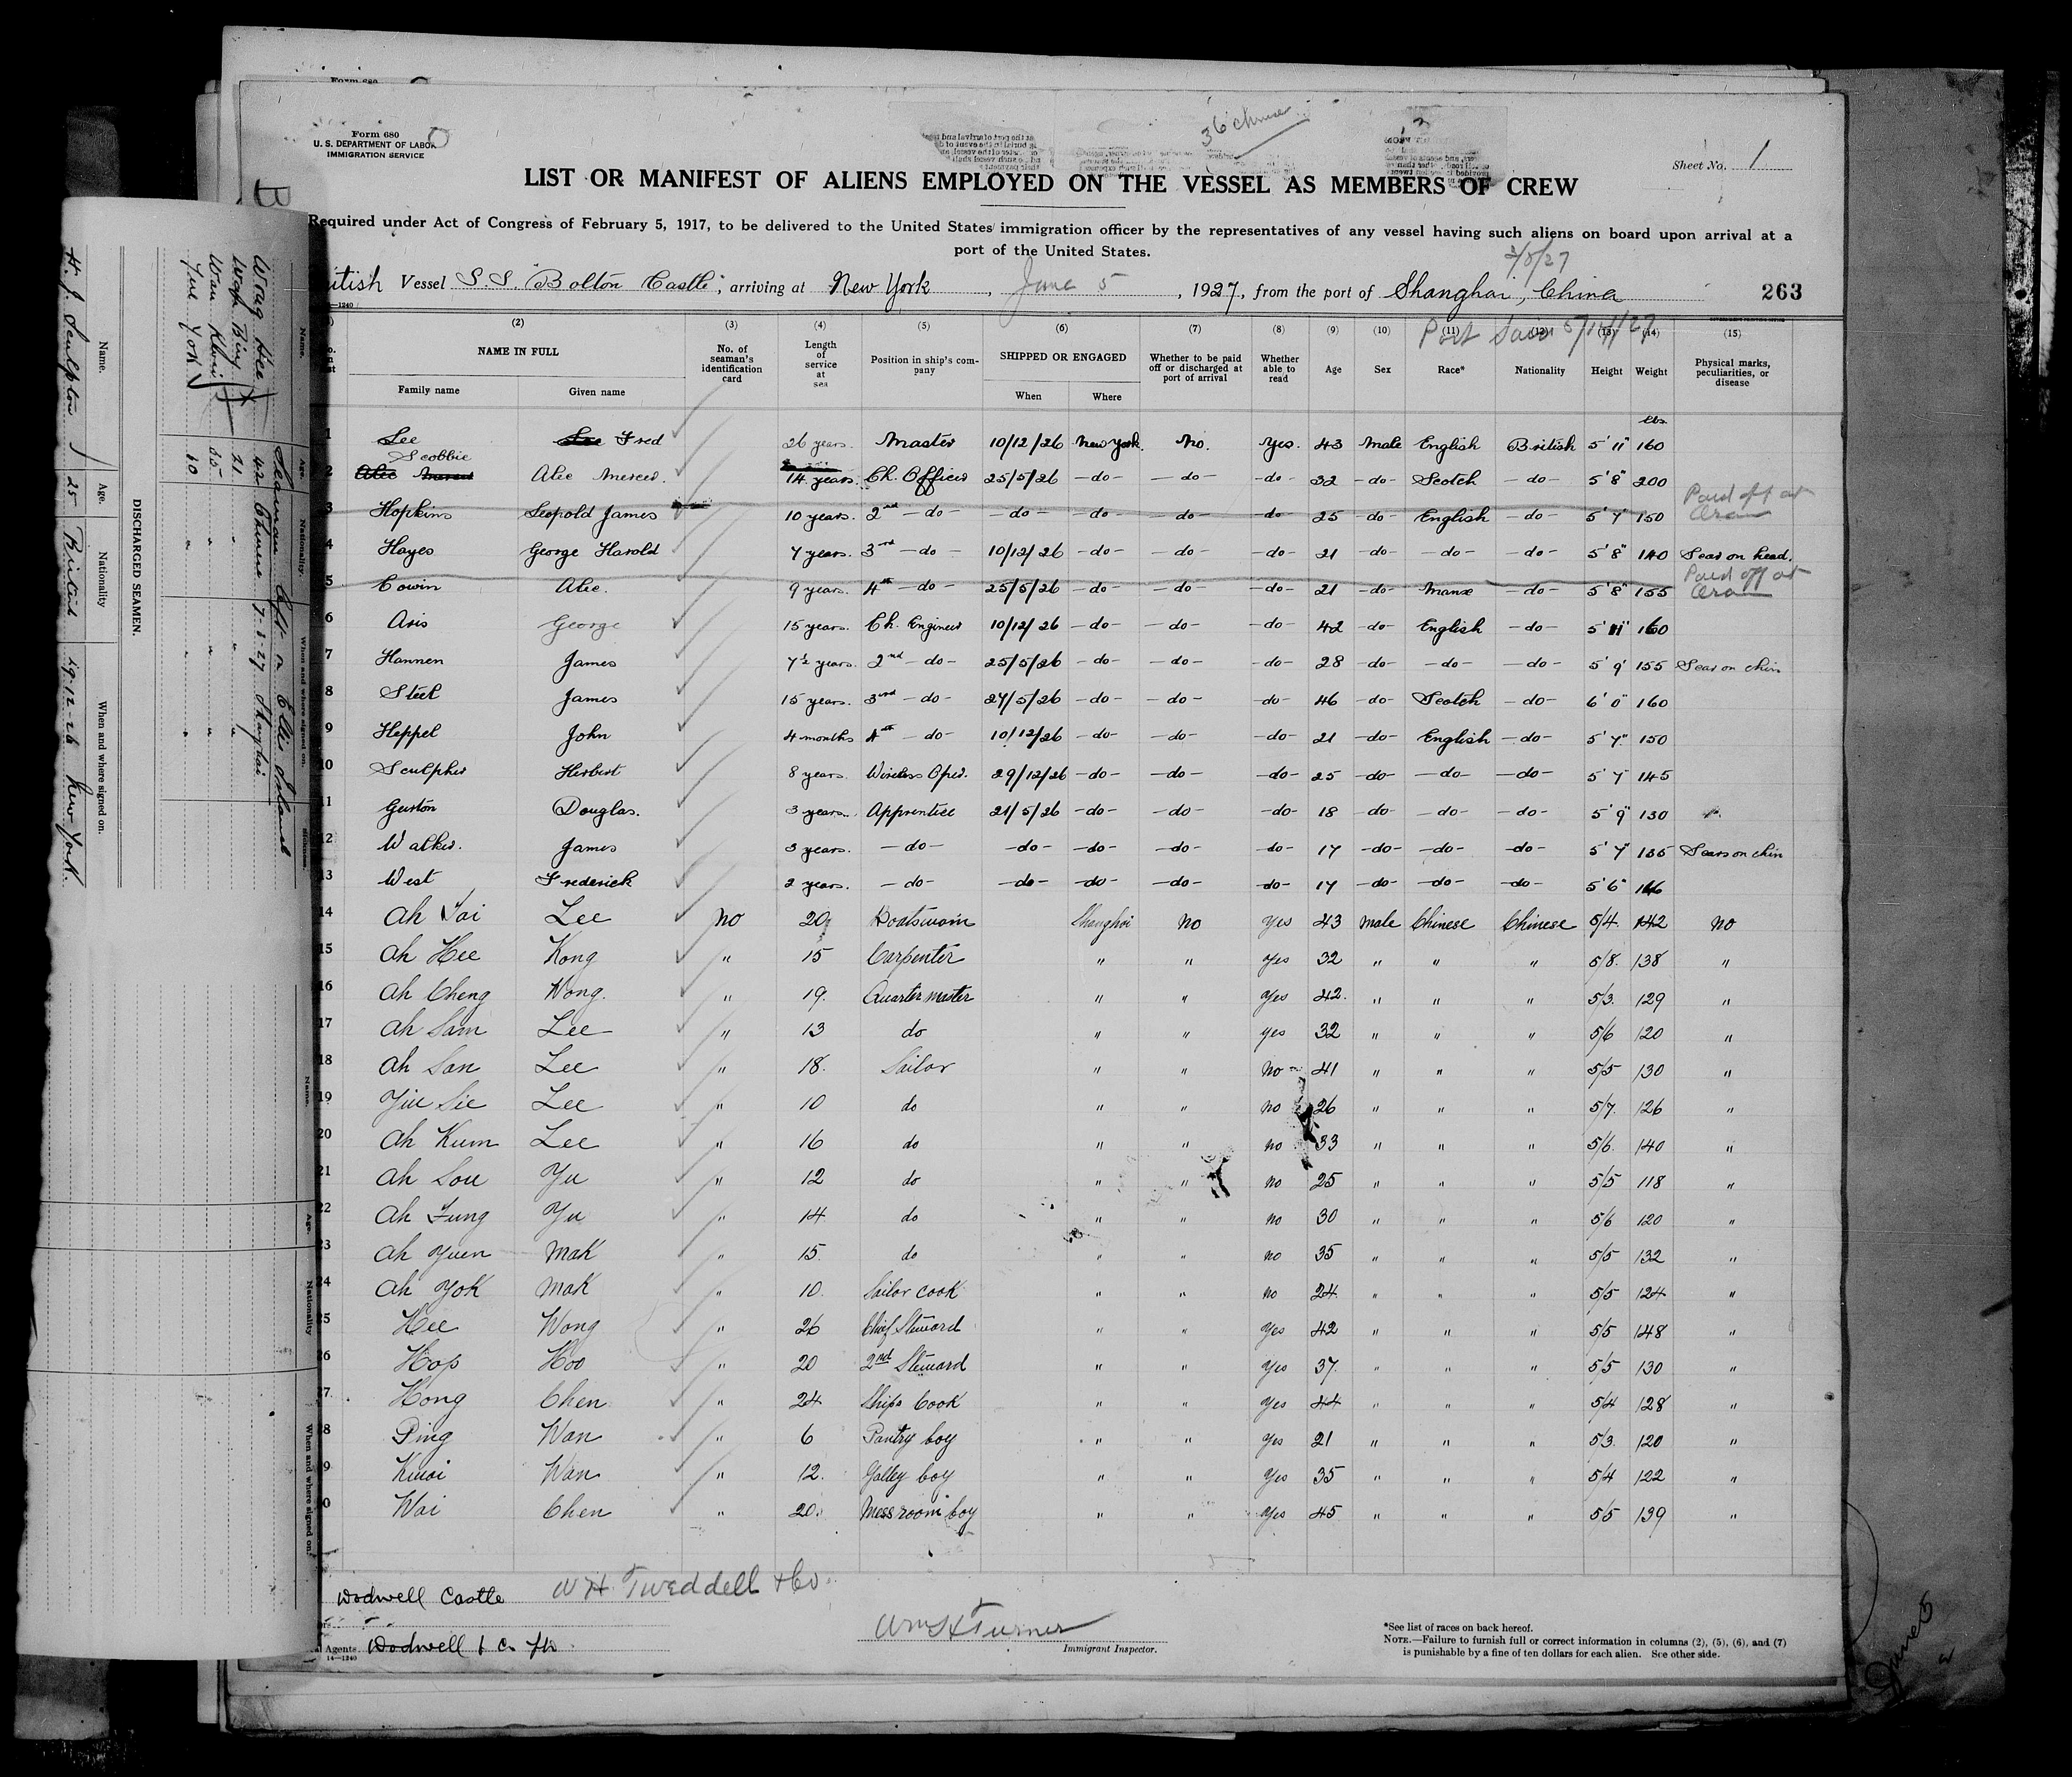 Form 680
U. S. DEPARTMENT OF LABOR
IMMIGRATION SERVICE
36 Chinese
Sheet No. 1
LIST OR MANIFEST OF ALIENS EMPLOYED ON THE VESSEL AS MEMBERS OF CREW
Required under Act of Congress of February 5, 1917, to be delivered to the United States immigration officer by the representatives of any vessel having such aliens on board upon arrival at a
port of the United States.
itish Vessel S.S. "Bolton Castle", arriving at New York, June 5, 1927, from the port of Shanghai, China 263
Port Said
(2) (3) (4) (5) (6) (7) (8) (9) (10) (11) (12) (13) (14) (15)
NAME IN FULL No. of seaman's identification card Length of service at sea Position in ship's company SHIPPED OR ENGAGED Whether to be paid off or discharged at port of arrival Whether able to read Age Sex Race* Nationality Height Weight Physical marks, peculiarities, or disease
Family name Given name When Where
lbs
1 Lee Fred 26 years. Master 10/12/26 New York No. Yes. 43 Male English British 5' 11" 160
Scobbie
2 Alec Merced. 14 years. Ch. Officer 25/5/26 -do- -do- -do- 32 -do- Scotch -do- 5' 8" 200
3 Hopkins Leopold James 10 years. 2nd -do- -do- -do- -do- -do- 25 -do- English -do- 5' 7" 150 Paid off at
4 Hayes George Harold 7 years. 3rd -do- 10/12/26 -do- -do- -do- 21 -do- -do- -do- 5' 8" 140 Scar on head.
5 Cowin Alec. 9 years. 4th -do- 25/5/26 -do- -do- -do- 21 -do- Manx -do- 5' 8" 155 Paid off at
6 Aris George 15 years. Ch. Engineer 10/12/26 -do- -do- -do- 42 -do- English -do- 5' 11" 160
7 Hannen James 7½ years. 2nd -do- 25/5/26 -do- -do- -do- 28 -do- -do- -do- 5' 9" 155 Scar on chin
8 Steel James 15 years. 3rd -do- 27/5/26 -do- -do- -do- 46 -do- Scotch -do- 6' 0" 160
9 Heppel John 4 months 4th -do- 10/12/26 -do- -do- -do- 21 -do- English -do- 5' 7" 150
10 Sculpher Herbert 8 years. Wireless Oper. 29/12/26 -do- -do- -do- 25 -do- -do- -do- 5' 7" 145
11 Gurton Douglas. 3 years. Apprentice 21/5/26 -do- -do- -do- 18 -do- -do- -do- 5' 9" 130
12 Walker. James 3 years. -do- -do- -do- -do- -do- 17 -do- -do- -do- 5' 7" 135 Scars on chin
13 West Frederick 2 years. -do- -do- -do- -do- -do- 17 -do- -do- -do- 5' 6"
14 Ah Tai Lee no 20 Boatswain Shanghai no yes 43 Male Chinese Chinese 5/4. 142 no
15 Ah Hee Kong " 15 Carpenter " " Yes 32 " " " 5/8. 138 "
16 Ah Cheng Wong. " 19. Quarter master " " Yes 42. " " " 5/3. 129 "
17 Ah Sam Lee " 13 do " " yes 32 " " " 5/6 120 "
18 Ah San Lee " 18. Sailor " " No 41 " " " 5/5 130 "
19 Yiu Sie Lee " 10 do " " no 26 " " " 5/7. 126 "
20 Ah Kum Lee " 16 do " " no 33 " " " 5/6. 140 "
21 Ah Sou Yu " 12 do " " no 25 " " " 5/5 118 "
22 Ah Fung Yu " 14 do " " no 30 " " " 5/6 120 "
23 Ah Yuen Mak " 15. do " " no 35 " " " 5/5 132 "
24 Ah Yok Mak " 10. Sailor cook " " no 24 " " " 5/5 124 "
25 Hee Wong " 26 Chief Steward " " Yes 42 " " " 5/5 148 "
26 Hop Hoo " 20 2nd Steward " " Yes 37. " " " 5/5 130 "
27. Hong Chen " 24 Ships Cook " " Yes 44 " " " 5/4 128 "
8 Ping Wan " 6 Pantry boy " " Yes 21 " " " 5/3. 120 "
9 Kwai Wan " 12. Galley boy " " Yes 35 " " " 5/4 122 "
0 Wai Chen " 20. Mess room boy " " Yes 45 " " " 5/5 139 "
Dodwell Castle W H Tweddell & Co
Agents Dodwell & Co. Ltd
14—1240
Wm H Turner
Immigrant Inspector.
*See list of races on back hereof.
NOTE.—Failure to furnish full or correct information in columns (2), (5), (6), and (7)
is punishable by a fine of ten dollars for each alien. See other side.
Seaman left on Ellis Island
Name. Age. Nationality. When and where signed on.
Wong Hee 42 Chinese 7-3-27 Shanghai
Wan Ping 21 " " "
Wan Kwai 35 " " "
DISCHARGED SEAMEN.
Name. Age. Nationality When and where signed on.
H. J. Sculpher 25 British 29.12.26 New York.
Name. Age. Nationality When and where signed on.